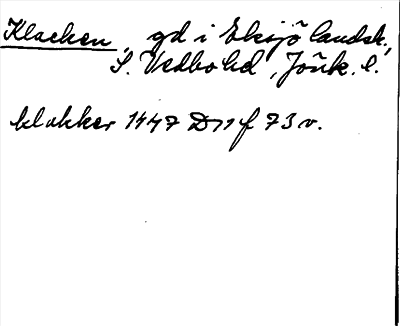 Klacken, gd i Eksjö landsk.,
S. Vedbo hd, Jönk. l.
klakker 1447 D11 f 73 v.